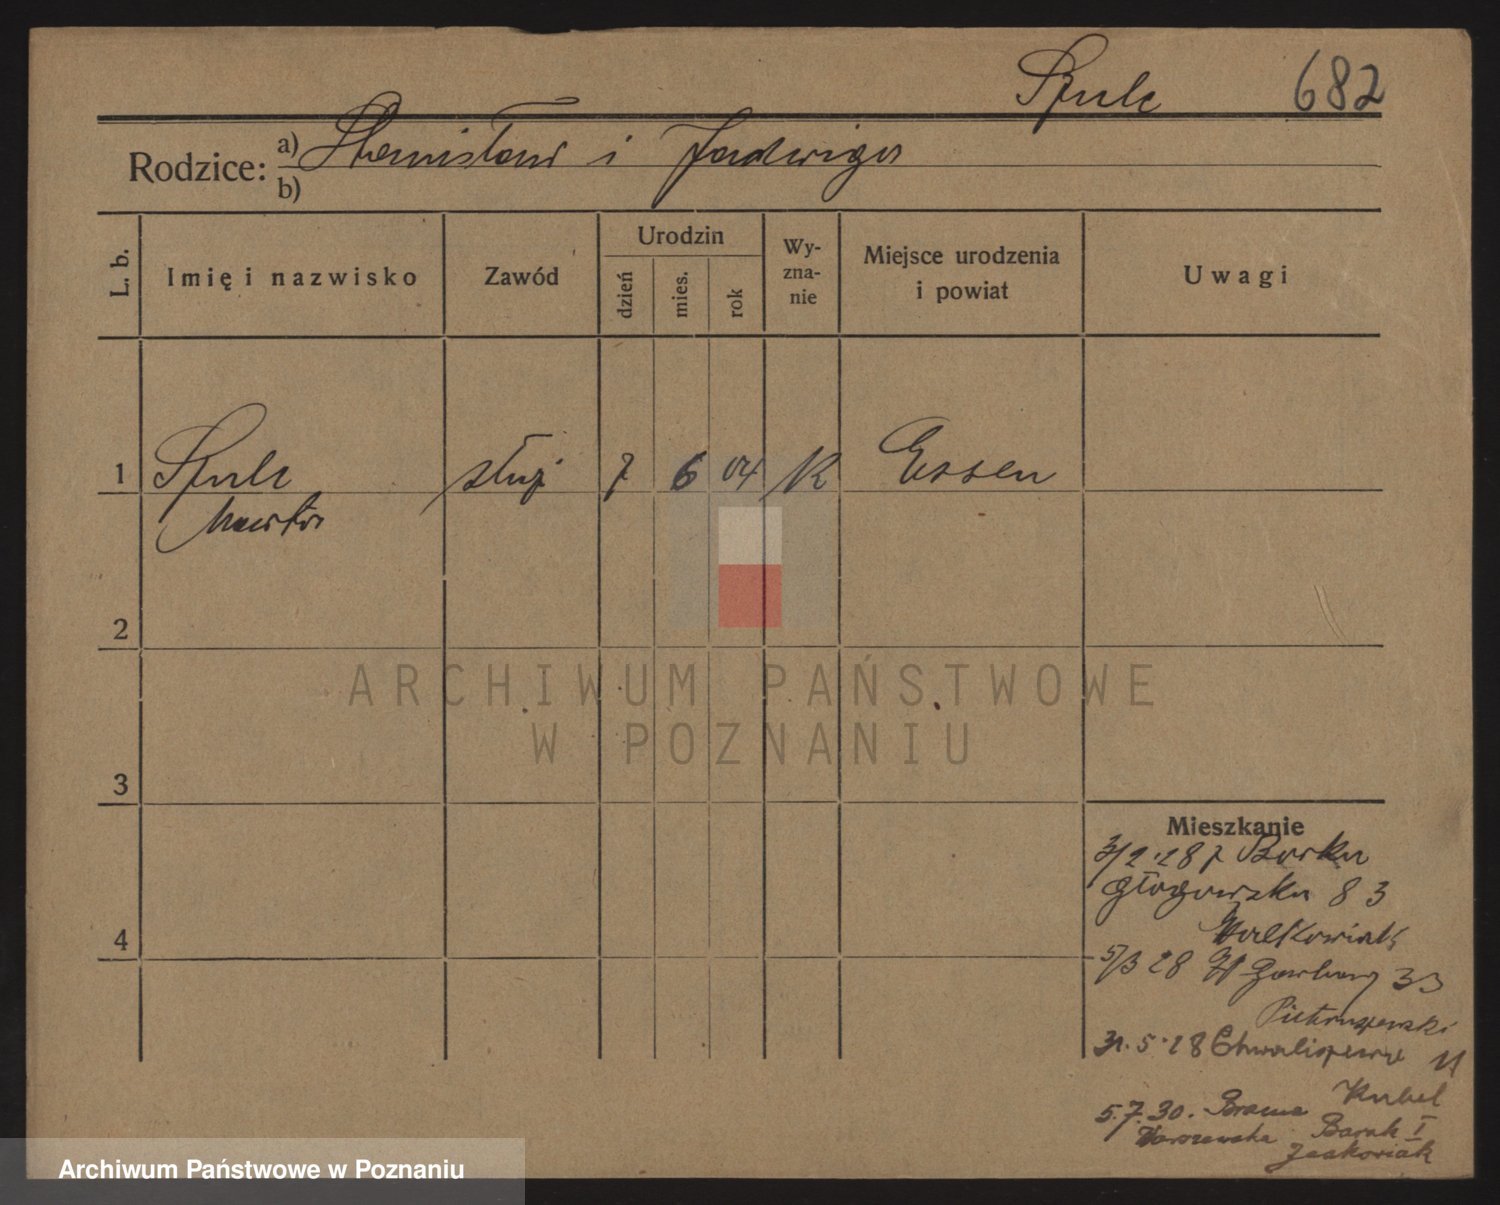 Szulc 682
Rodzice: a) Stanisław i Jadwiga
b)
L. b.
Imię i nazwisko
Zawód
Urodzin
dzień
mies.
rok
Wy-
zna-
nie
Miejsce urodzenia
i powiat
Uwagi
1 Szulc służ 7 6 04 K Essen
Marta
2
3
4
Mieszkanie
3/2.28 z Borku
Głogowska 83
Walkowiak
5/3 28 Garbary 33
Pietruszewski
31.5.28 Chwaliszewo 11
Kubel
5.7.30. Brama
Warszawska Barak I
Jaskowiak
ARCHIWUM PAŃSTWOWE
W POZNANIU
Archiwum Państwowe w Poznaniu